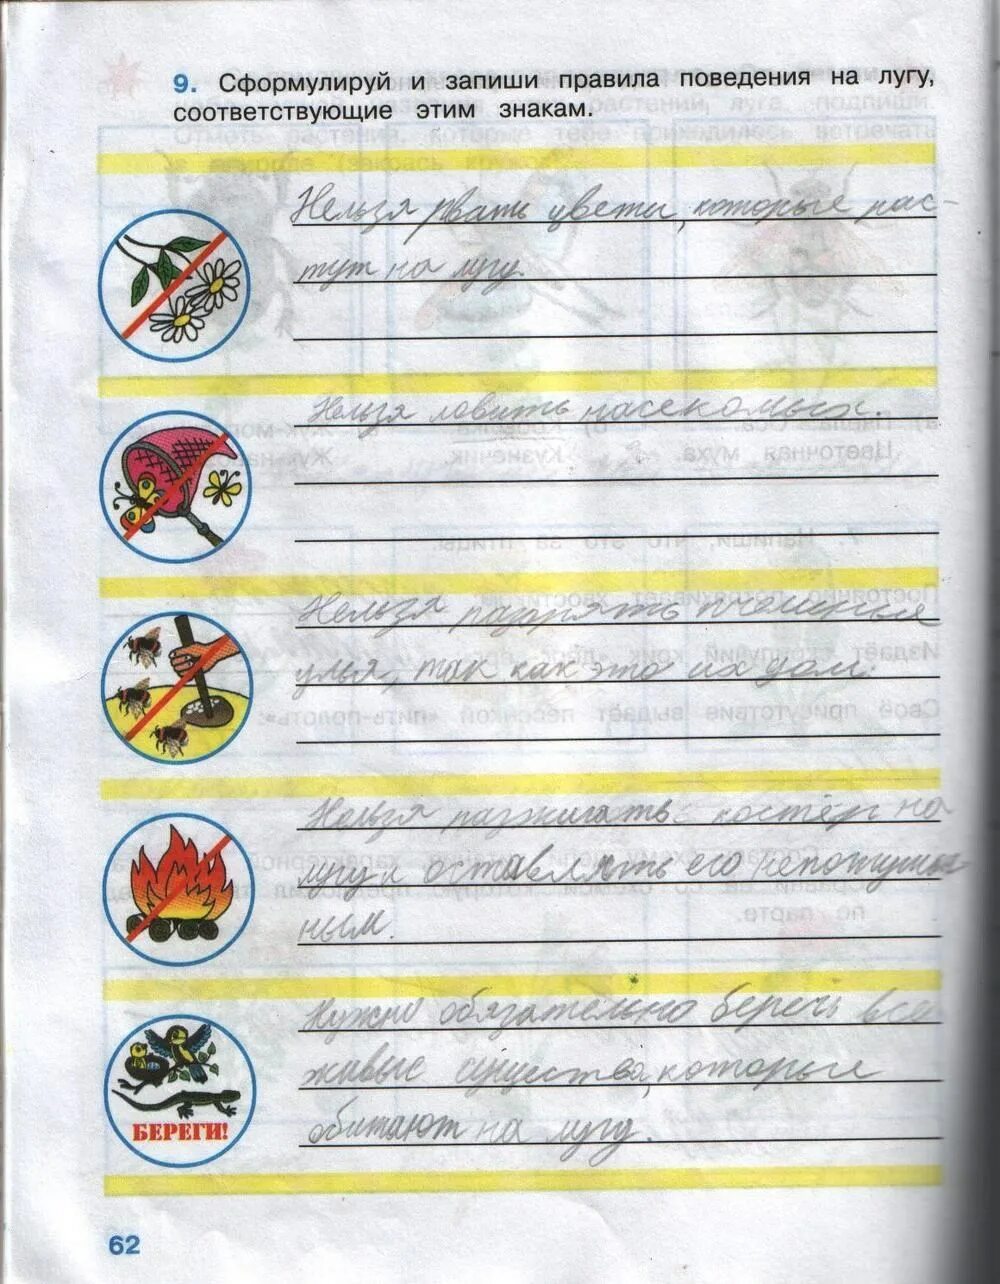 9. Сформулируй и запиши правила поведения на лугу,
соответствующие этим знакам.
Нельзя рвать цветы, которые рас-
тут на лугу.
Нельзя ловить насекомых.
Нельзя разорять пчелиные
улья, так как это их дом.
Нельзя разжигать костёр на
лугу и оставлять его непотушен-
ным.
Нужно обязательно беречь все
живые существа, которые
обитают на лугу.
БЕРЕГИ!
62